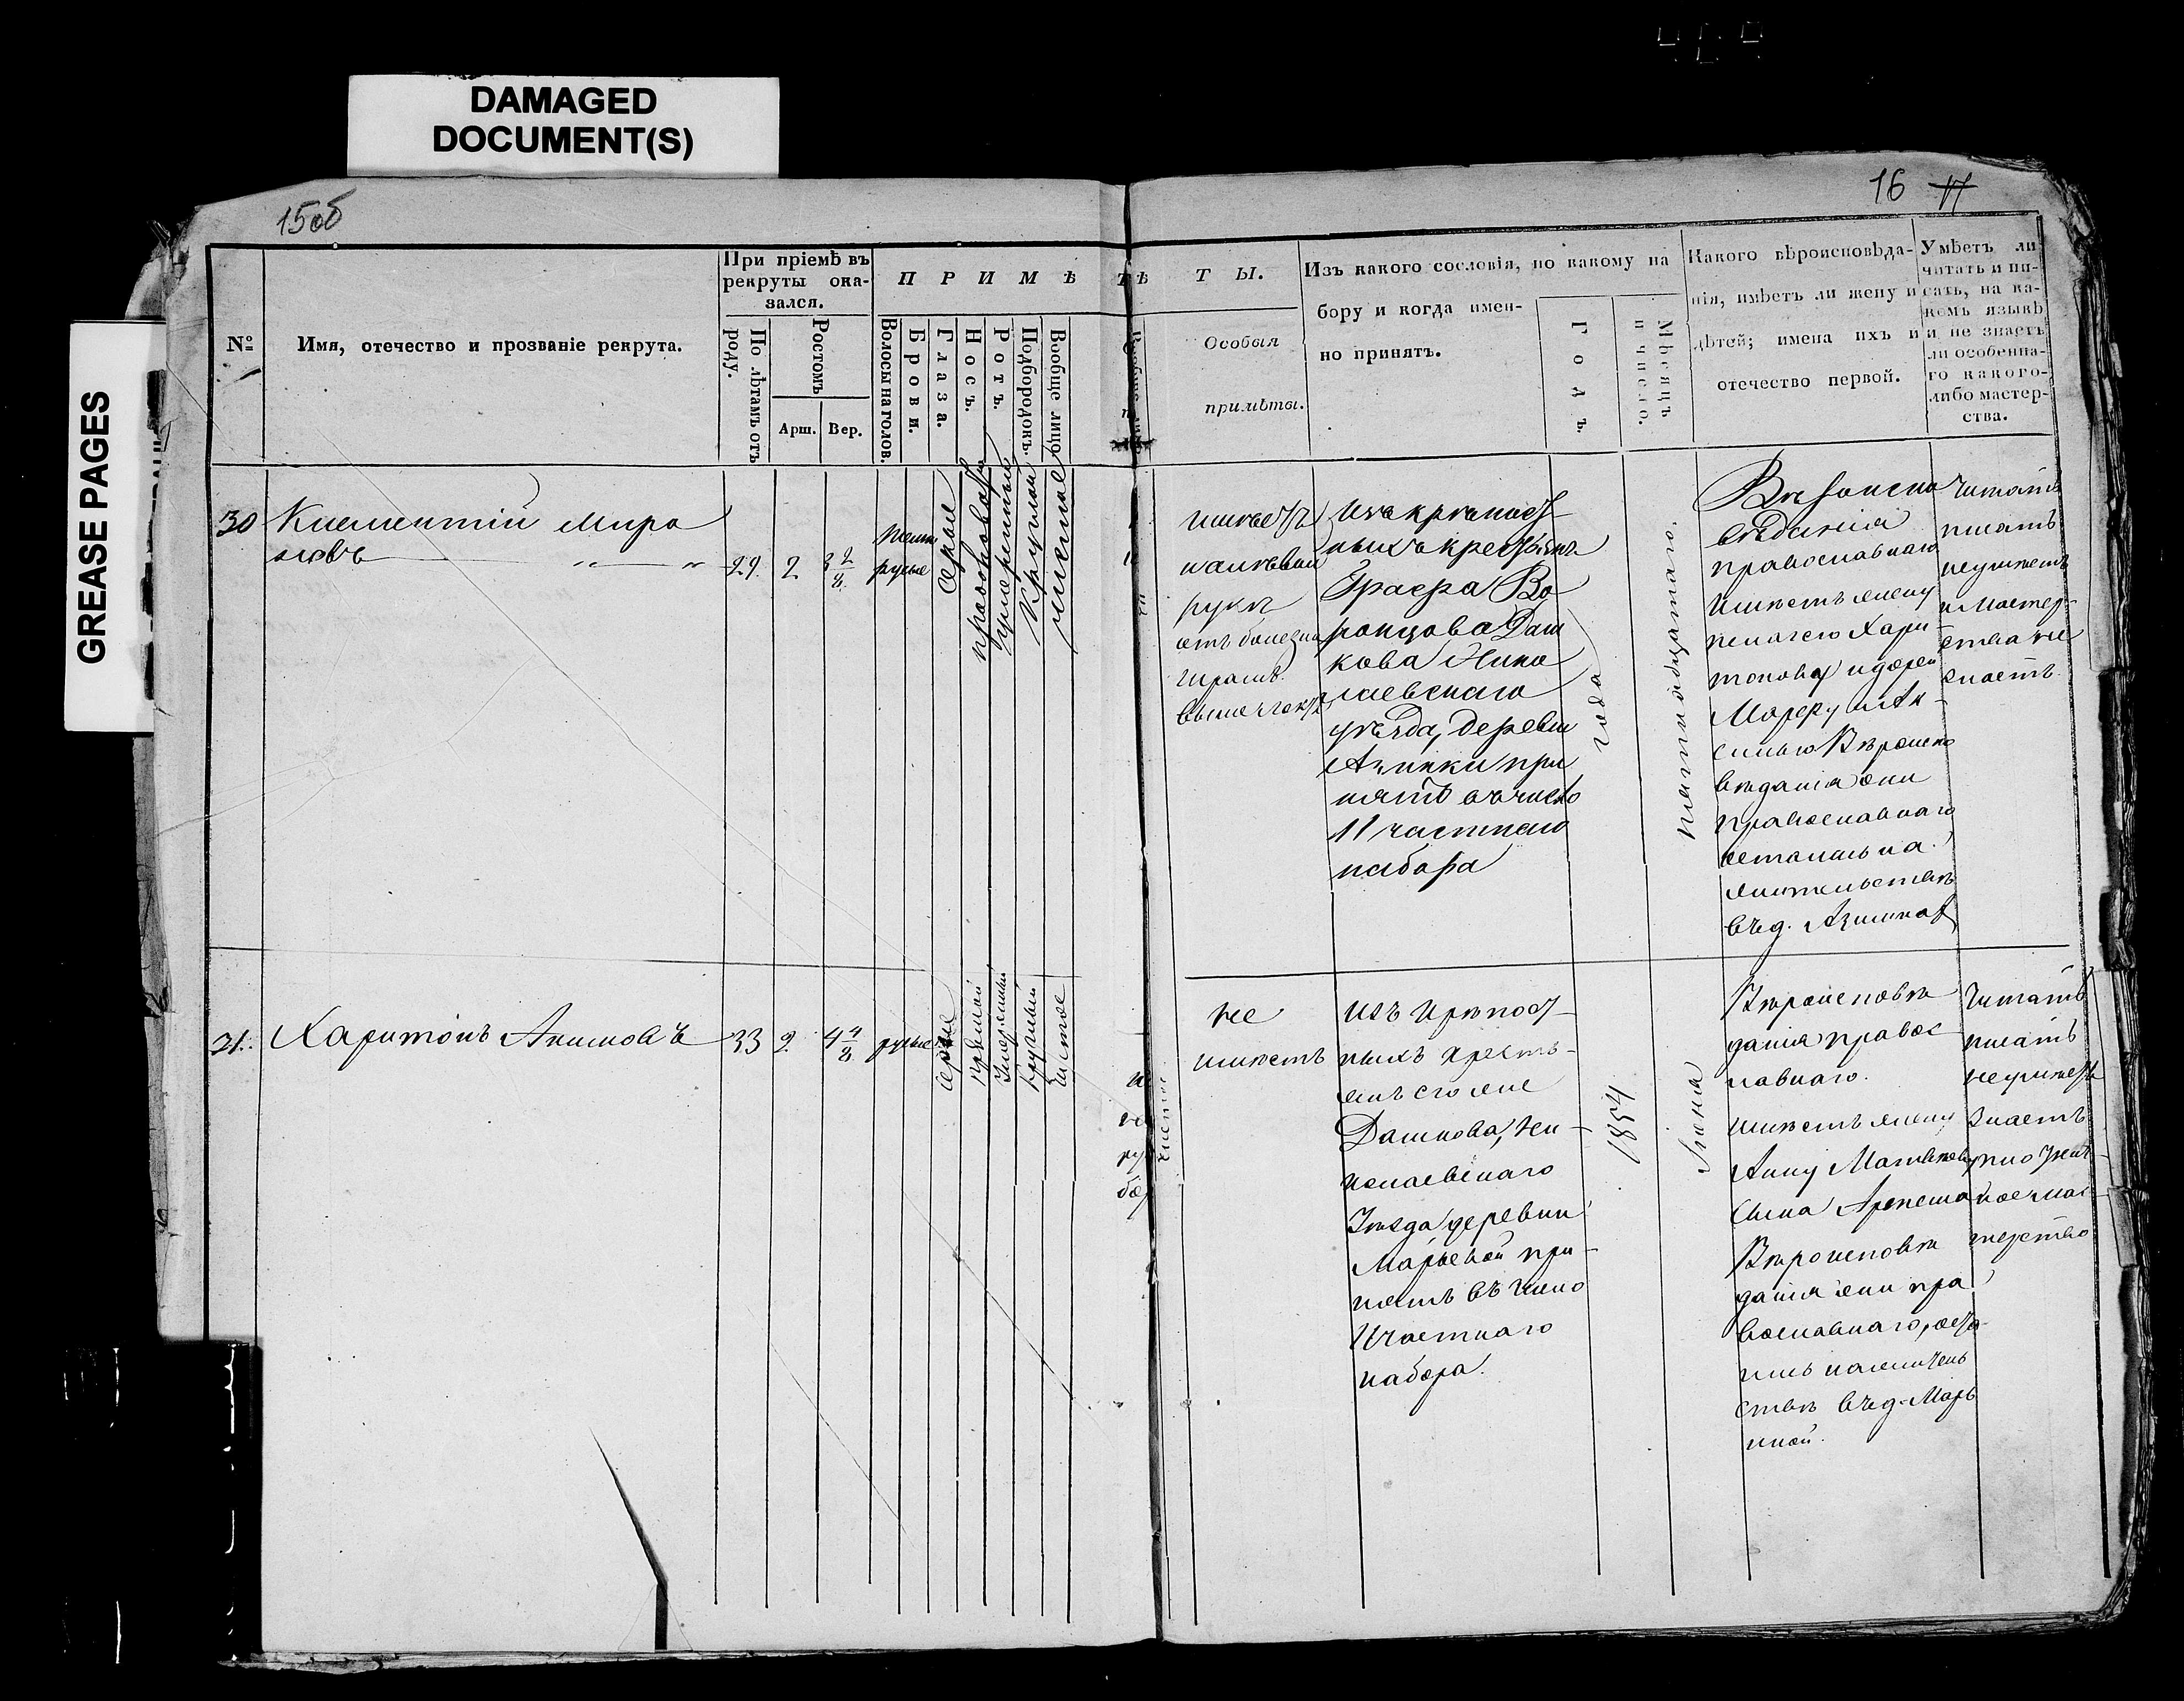 DAMAGED
DOCUMENT(S)
GREASE PAGES
15об
16 17
№
Имя, отечество и прозваніе рекрута.
При пріемѣ въ
рекруты ока-
зался.
По лѣтамъ отъ
роду.
Ростомъ
Арш.
Вер.
ПРИМѢ
Волосы на голов.
Брови.
Глаза.
Носъ.
Ротъ.
Подбородокъ.
Вообще лицо.
ТЫ.
Особыя
примѣты.
Изъ какого сословія, по какому на
бору и когда имен-
но принятъ.
Годъ.
Мѣсяцъ
и число.
Какого вѣроисповѣда-
нія, имѣетъ ли жену и
дѣтей; имена ихъ и
отечество первой.
Умѣетъ ли
читать и пи-
сать, на ка-
комъ языкѣ
и не знаетъ
ли особенна-
го какого-
либо мастер-
ства.
30
Клементій Миро
новъ
29 2 3 2/8
темно
русые
серые
умеренный
круглый
чистое
имѣетъ
на левой
руке
отъ болезни
Изъ крѣпост-
ныхъ крестьянъ
Графа Во
ронцова Даш
кова Нико
лаевскаго
уѣзда, деревни
Азинки при
нятъ въ число
11 частнаго
набора
года
пятнадцатаго.
Вѣроиспо
вѣданія
православнаго
имѣетъ жену
Пелагею Хари-
тонову и дочерей
Марфу и Ак-
синью Вѣроиспо
вѣданія они
православнаго
остались на
жительствѣ
въ д.
Читать
писать
неумѣетъ
и мастер-
ства не
знаетъ.
31.
Харитонъ Акимовъ
33 2 4 4/8
русые
серые
прямой
умеренный
круглый
чистое
не
имѣетъ
Изъ Крѣпост-
ныхъ кресть-
янъ его же
Дашкова, Ни-
колаевскаго
Уѣзда деревни
Марьевой при-
нятъ въ число
11 частнаго
набора.
1854
Іюня
Вѣроисповѣ
данія правос
лавнаго.
имѣетъ жену
Анну Матвѣеву
сына
Вѣроисповѣ
данія они пра
вославнаго, оста-
лись на житель
ствѣ въ д. Марь
иной.
Читать
писать
неумѣетъ
Знаетъ
мас-
терство